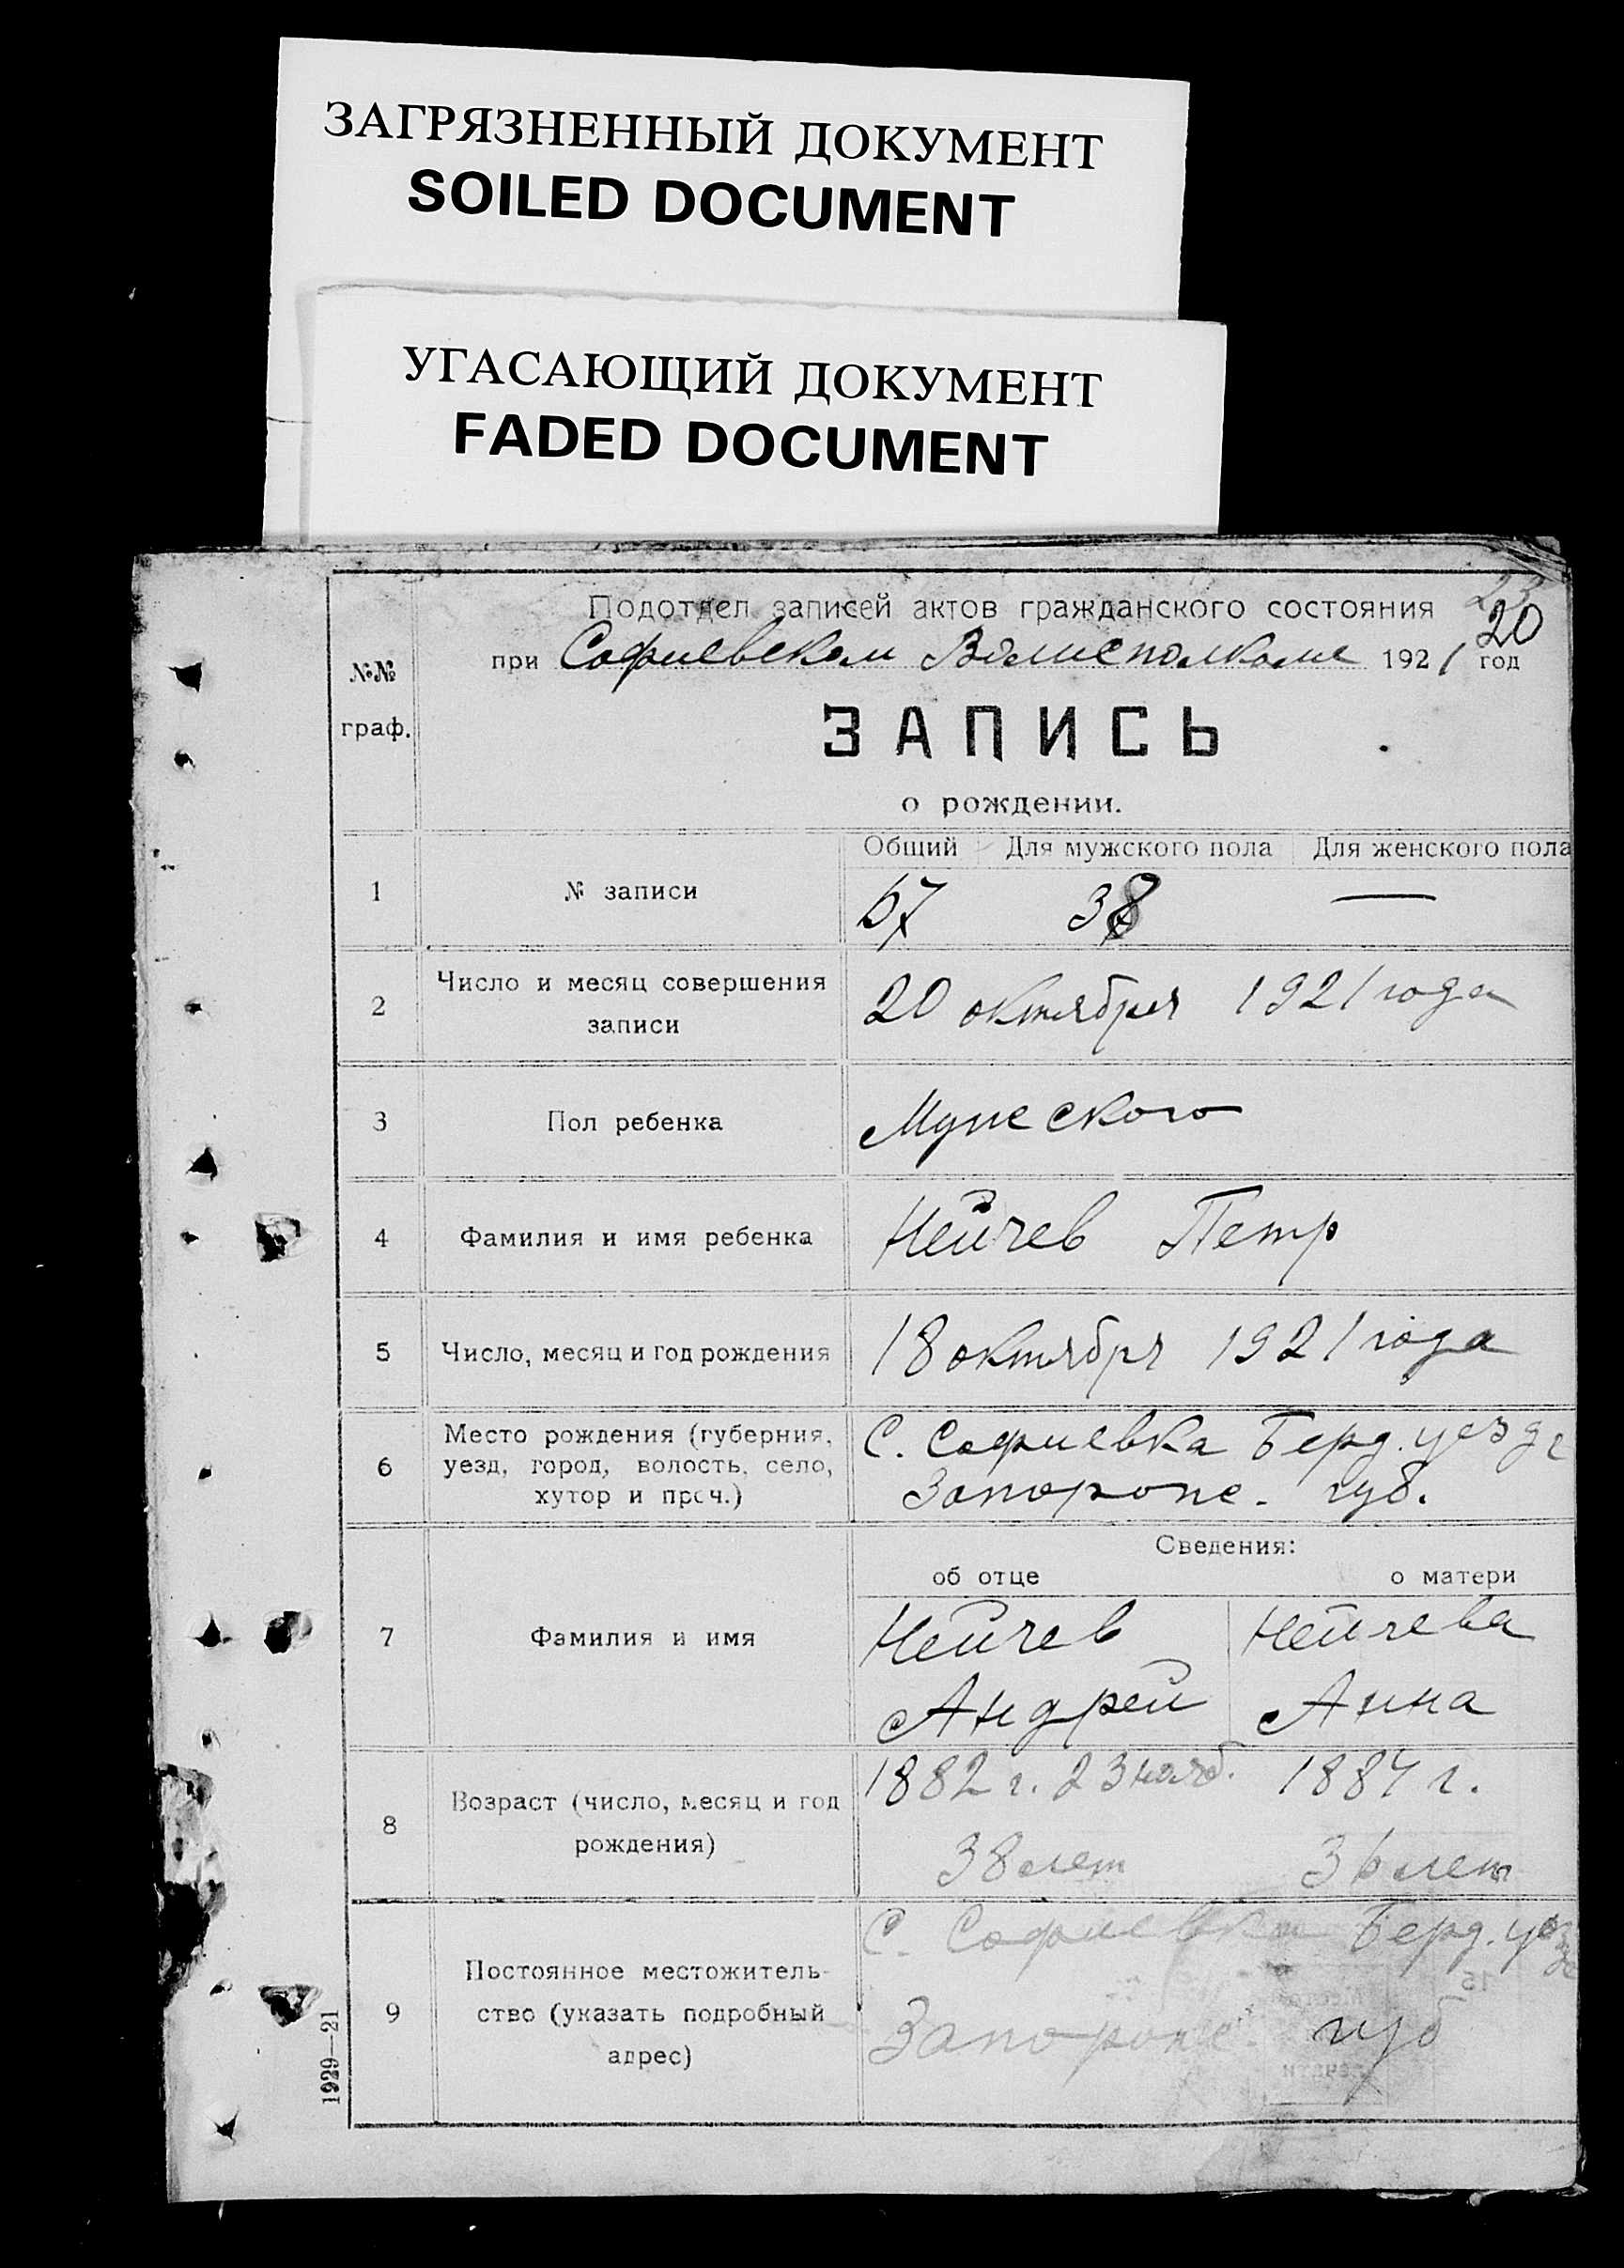 ЗАГРЯЗНЕННЫЙ ДОКУМЕНТ
SOILED DOCUMENT
УГАСАЮЩИЙ ДОКУМЕНТ
FADED DOCUMENT
23
20
Подотдел записей актов гражданского состояния
при Софиевском Волисполкоме 1921 год
№№
граф.
ЗАПИСЬ
о рождении.
Общий Для мужского пола Для женского пола
1 № записи 57 38 —
2 Число и месяц совершения
записи
20 октября 1921 года
3 Пол ребенка Мужского
4 Фамилия и имя ребенка Нейчев Петр
5 Число, месяц и год рождения 18 октября 1921 года
6 Место рождения (губерния,
уезд, город, волость, село,
хутор и проч.)
С. Софиевка Берд. уезда
Запорож. губ.
Сведения:
об отце о матери
7 Фамилия и имя
Нейчев Нейчева
Андрей Анна
8 Возраст (число, месяц и год
рождения)
1882 г. 23 нояб. 1884 г.
38 лет 36 лет
9 Постоянное местожитель-
ство (указать подробный
адрес)
С. Софиевка Берд. уезда
Запорож. губ
1929—21